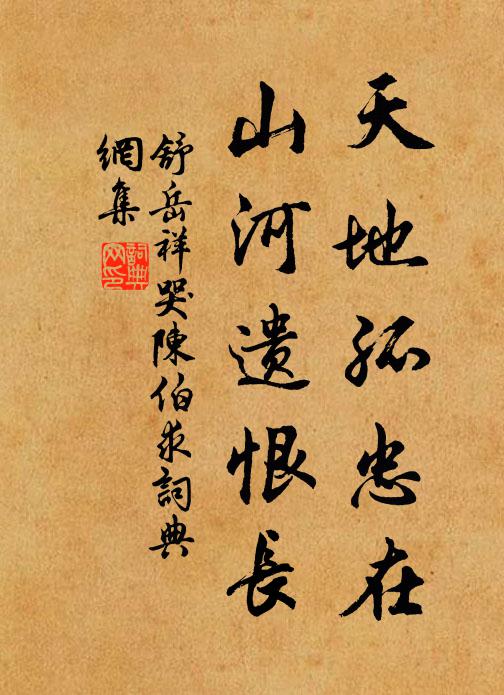 天地孤忠在
山河遺恨長
舒岳祥哭陳伯求詞典
網集
詞典網印